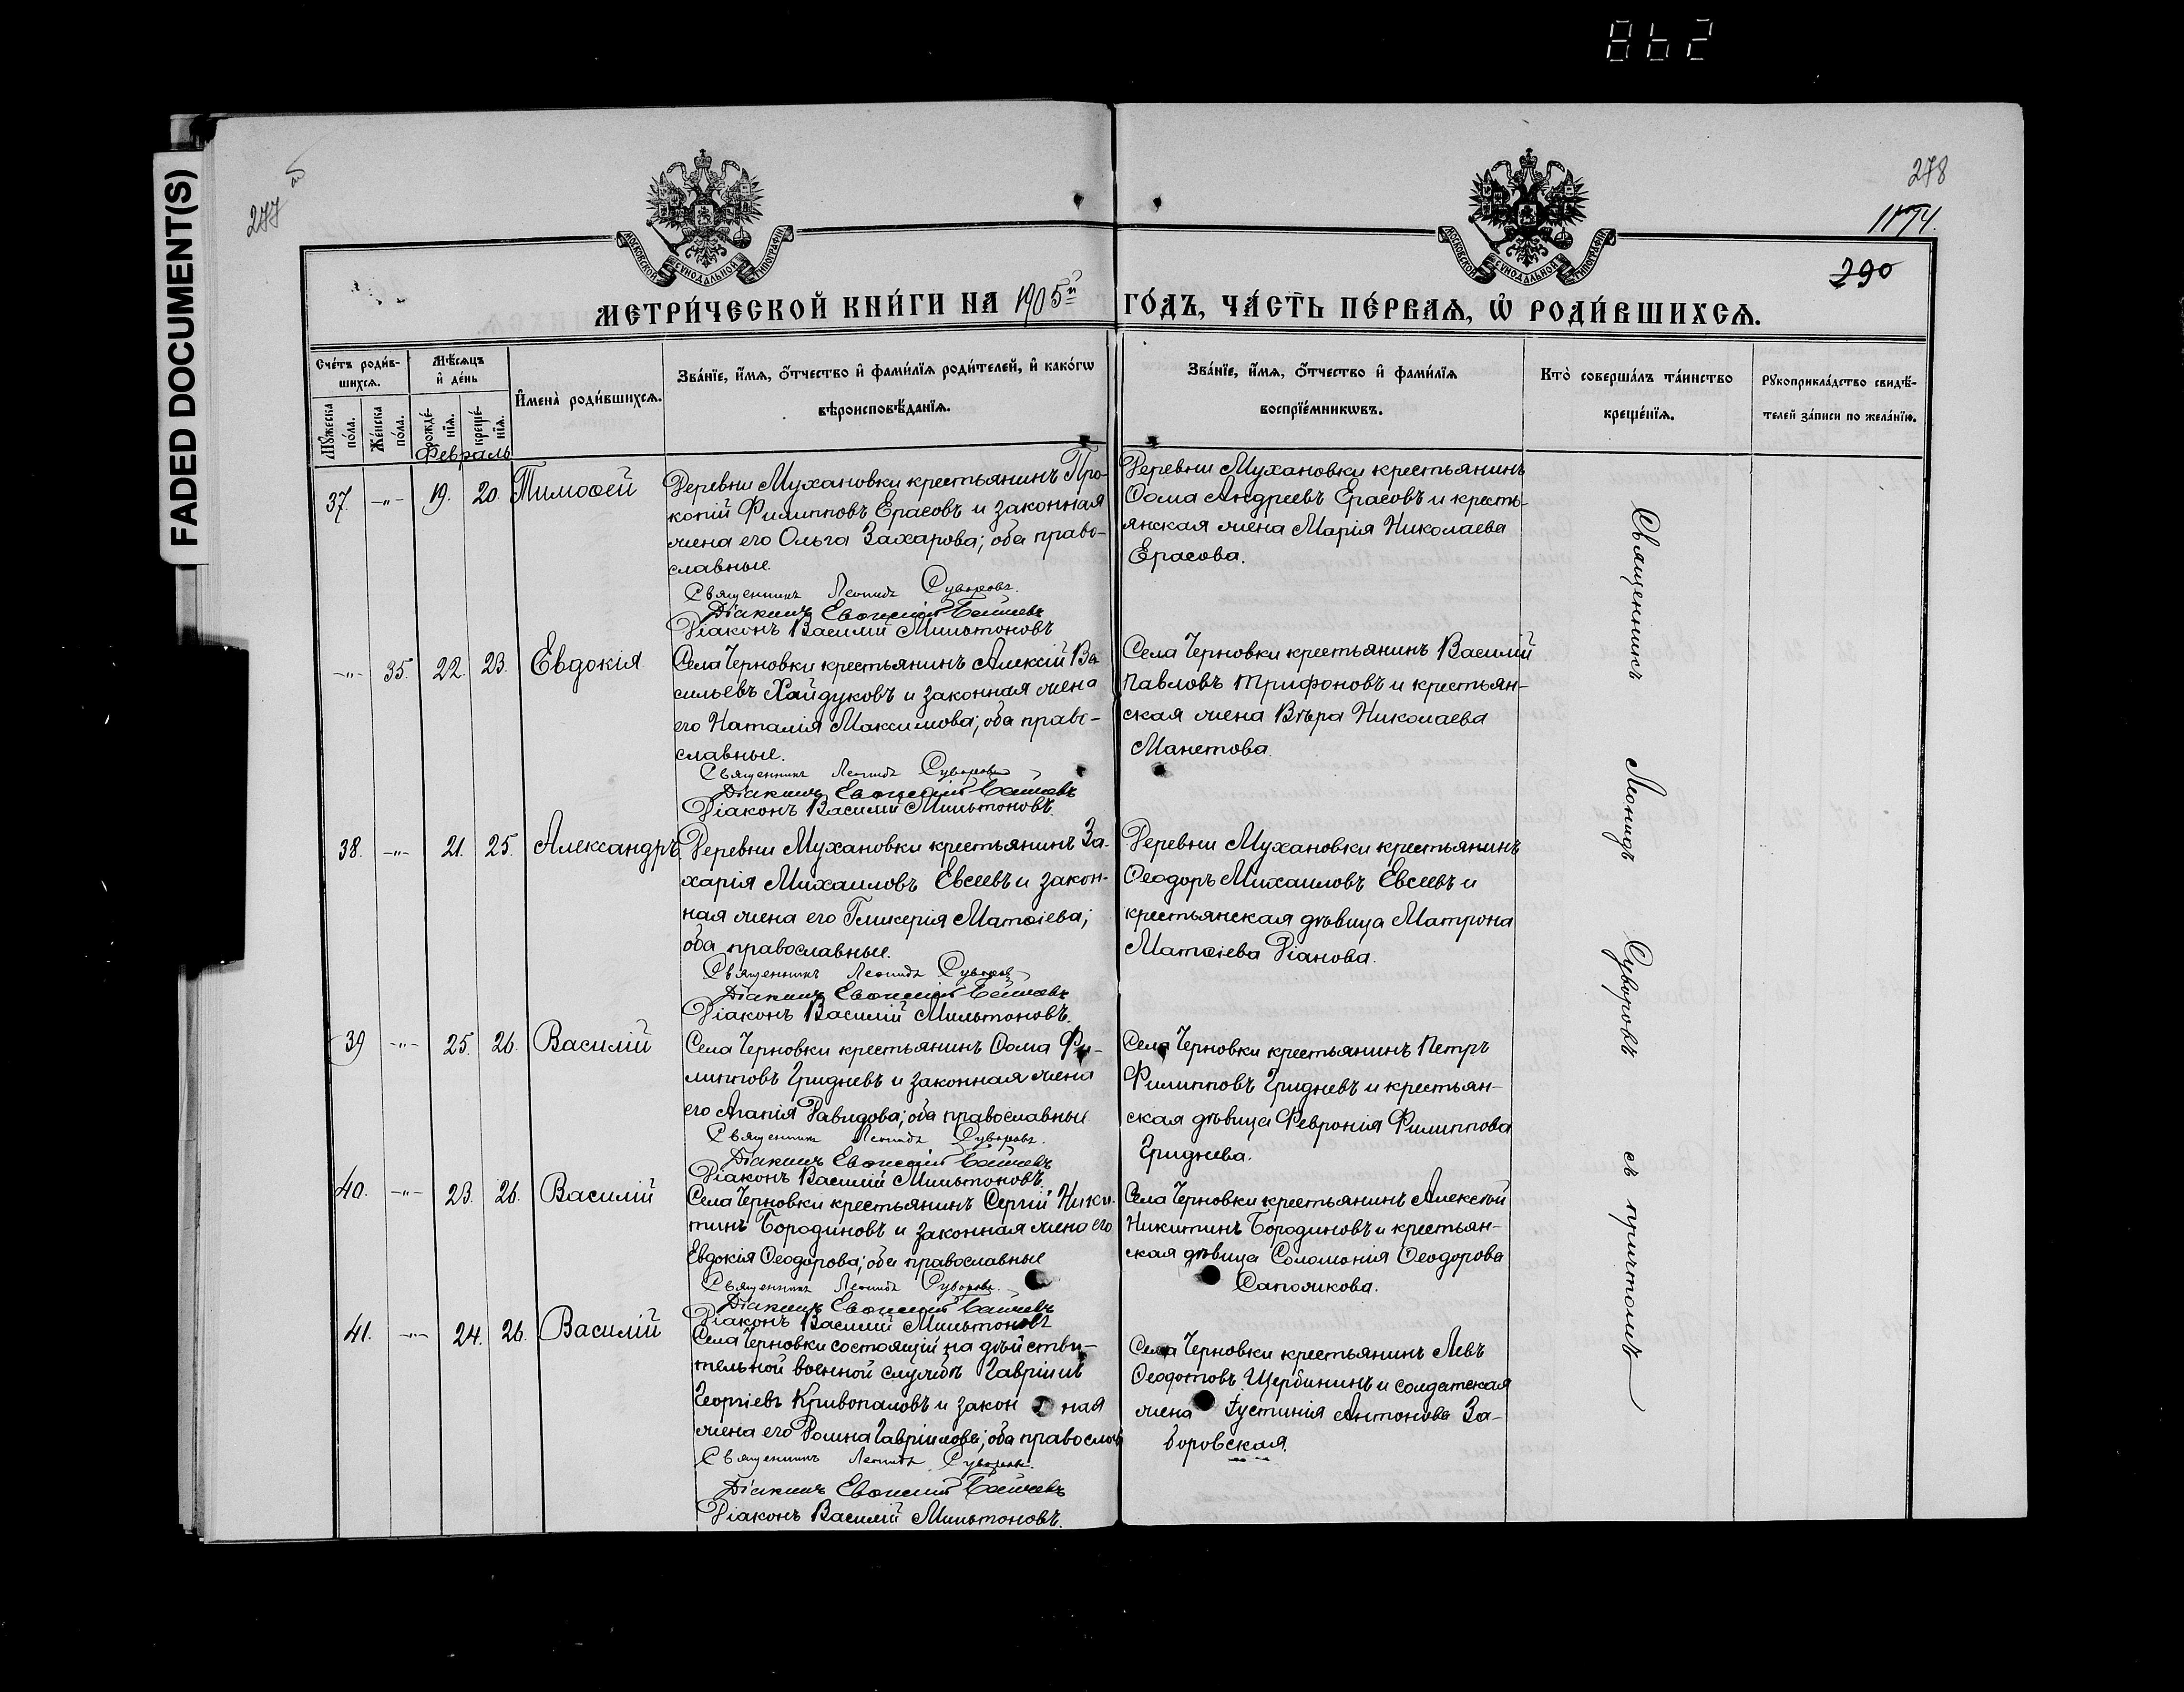 862
FADED DOCUMENT(S)
277
278
1174.
290
МОСКОВСКОЙ СѴНОДАЛЬНОЙ ТИПОГРАФІИ
МОСКОВСКОЙ СѴНОДАЛЬНОЙ ТИПОГРАФІИ
МЕТРИ́ЧЕСКОЙ КНИ́ГИ НА 1905й ГО́ДЪ, ЧА́СТЬ ПЕ́РВАѦ, Ѡ҆ РОДИ́ВШИХСѦ.
Сче́тъ роди́в-
шихсѧ.
Мꙋ́жеска по́ла.
Же́нска по́ла.
Мѣ́сѧцъ
и҆ де́нь
рожде́-
нїѧ.
креще́-
нїѧ.
И҆мена̀ роди́вшихсѧ.
Зва́нїе, и҆́мѧ, ѻ҆́тчество и҆ фами́лїѧ роди́телей, и҆ како́гѡ
вѣроисповѣ́данїѧ.
Зва́нїе, и҆́мѧ, ѻ҆́тчество и҆ фами́лїѧ
воспрїе́мникѡвъ.
Кто̀ соверша́лъ та́инство
креще́нїѧ.
Рꙋкоприкла́дство свидѣ́-
телей за́писи по жела́нїю.
Февраль
37. -"- 19. 20. Тимоѳей
Деревни Мухановки крестьянинъ Про-
копій Филипповъ Ерасовъ и законная
жена его Ольга Захарова; оба право-
славные.
Священникъ Леонидъ Суворовъ.
Діаконъ Василій Мильтоновъ
Деревни Мухановки крестьянинъ
Ѳома Андреевъ Ерасовъ и кресть-
янская жена Марія Николаева
Ерасова.
-"- 35. 22. 23. Евдокія
Села Черновки крестьянинъ Алексій Ва-
сильевъ Хайдуковъ и законная жена
его Наталія Максимова; оба право-
славные.
Священникъ Леонидъ Суворовъ
Діаконъ Василій Мильтоновъ.
Села Черновки крестьянинъ Василій
Павловъ Трифоновъ и крестьян-
ская жена Вѣра Николаева
Манетова.
38. -"- 21. 25. Александръ
Деревни Мухановки крестьянинъ За-
харія Михаиловъ Евсеевъ и закон-
ная жена его Гликерія Матѳіева;
оба православные.
Священникъ Леонидъ Суворовъ
Діаконъ Василій Мильтоновъ.
Деревни Мухановки крестьянинъ
Ѳеодоръ Михаиловъ Евсеевъ и
крестьянская дѣвица Матрона
Матѳіева Діанова.
39 -"- 25. 26. Василій
Села Черновки крестьянинъ Ѳома Фи-
липповъ Гридневъ и законная жена
его Агапія Давидова; оба православные
Священникъ Леонидъ Суворовъ.
Діаконъ Василій Мильтоновъ.
Села Черновки крестьянинъ Петръ
Филипповъ Гридневъ и крестьян-
ская дѣвица Феврония Филиппова
Гриднева.
40. -"- 23. 26. Василій
Села Черновки крестьянинъ Сергій Ники-
тинъ Бородиновъ и законная жена его
Евдокія Ѳеодорова; оба православные
Священникъ Леонидъ Суворовъ.
Діаконъ Василій Мильтоновъ
Села Черновки крестьянинъ Алексѣй
Никитинъ Бородиновъ и крестьян-
ская дѣвица Соломонія Ѳеодорова
Сапожкова.
41. -"- 24. 26. Василій
Села Черновки состоящій на дѣйстви-
тельной военной службѣ Гавріилъ
Георгіевъ Кривопаловъ и законная
жена его Домна Гавріилова; оба православ
Священникъ Леонидъ Суворовъ.
Діаконъ Василій Мильтоновъ.
Села Черновки крестьянинъ Левъ
Ѳеодотовъ Щербининъ и солдатская
жена Іустинія Антонова За-
боровская.
Священникъ Леонидъ Суворовъ съ причтомъ